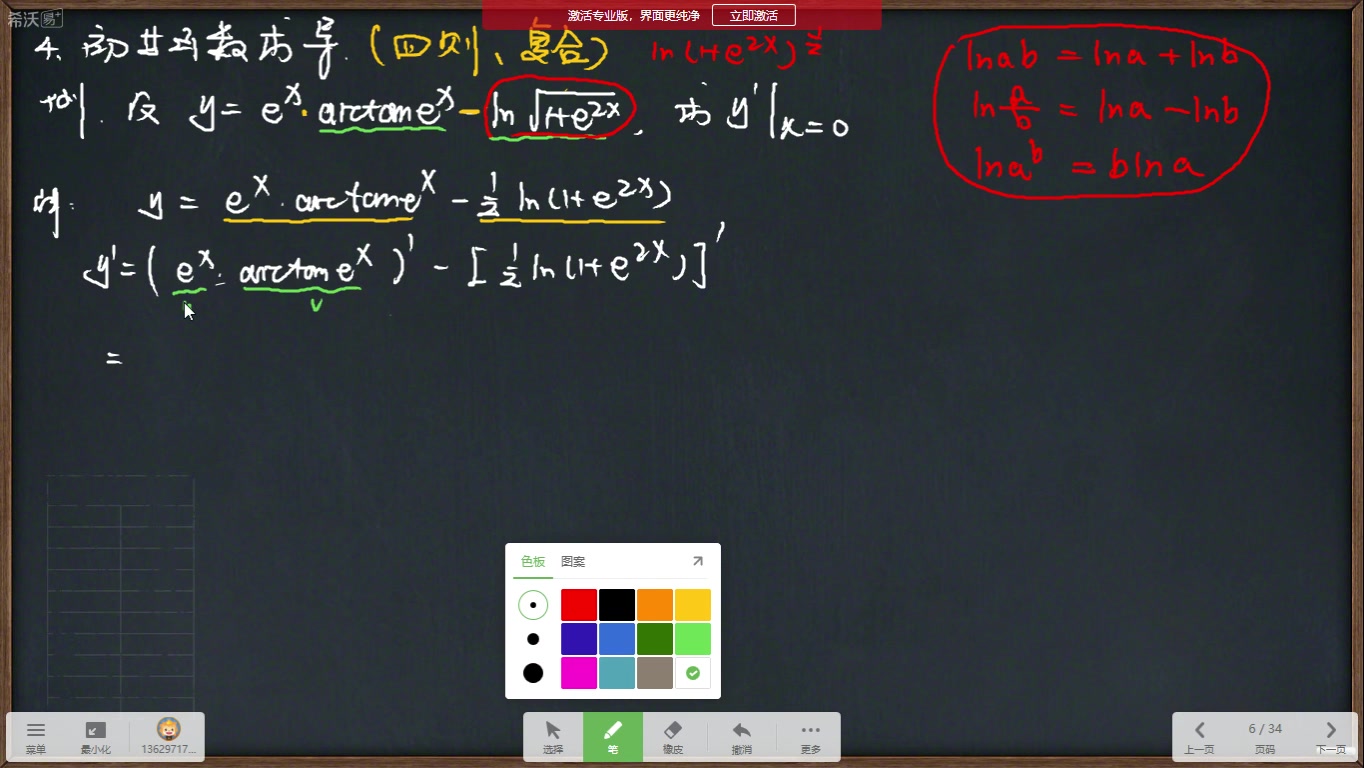 希沃易+
激活专业版，界面更纯净 立即激活
4. 初等函数求导.（四则、复合） ln(1+e^{2x})^{\frac{1}{2}}
例1. 设 y = e^x · arctan e^x − ln√(1+e^{2x}), 求 y'|_{x=0}
ln ab = ln a + ln b
ln \frac{a}{b} = ln a − ln b
ln a^b = b ln a
解: y = e^x · arctan e^x − \frac{1}{2} ln(1+e^{2x})
y' = ( e^x · arctan e^x )' − [ \frac{1}{2} ln(1+e^{2x}) ]'
v
=
色板 图案
菜单 最小化 13629717...
选择 笔 橡皮 撤消 更多
上一页 6 / 34 页码 下一页